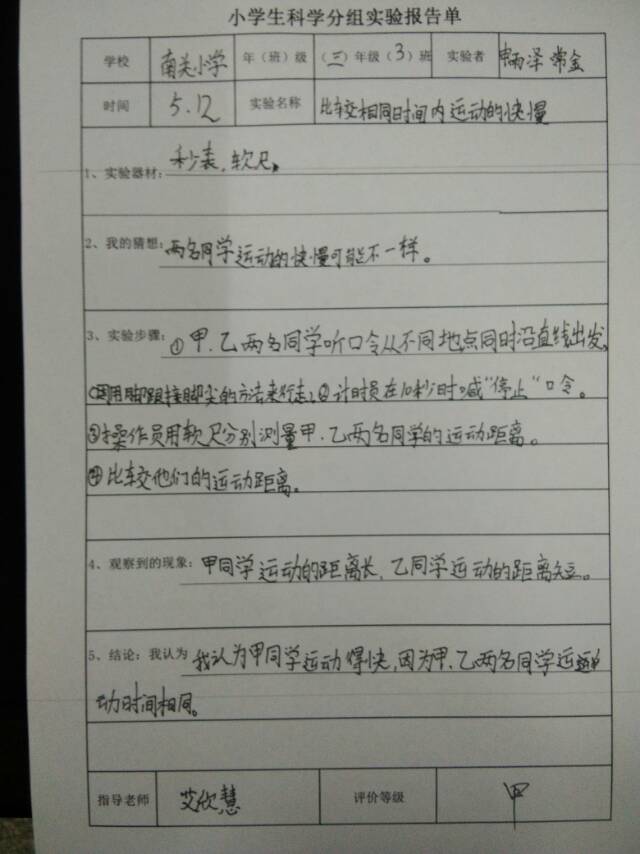 小学生科学分组实验报告单
学校 南关小学 年（班）级 （三）年级（3）班 实验者 申雨泽 常金
时间 5.12 实验名称 比较相同时间内运动的快慢
1、实验器材：秒表，软尺。
2、我的猜想：两名同学运动的快慢可能不一样。
3、实验步骤：①甲、乙两名同学听口令从不同地点同时沿直线出发，
（用脚跟接脚尖的方法来行走）②计时员在10秒时喊“停止”口令。
③操作员用软尺分别测量甲、乙两名同学的运动距离。
④比较他们的运动距离。
4、观察到的现象：甲同学运动的距离长，乙同学运动的距离短。
5、结论：我认为 我认为甲同学运动得快，因为甲、乙两名同学运
动时间相同。
指导老师 艾欣慧 评价等级 甲